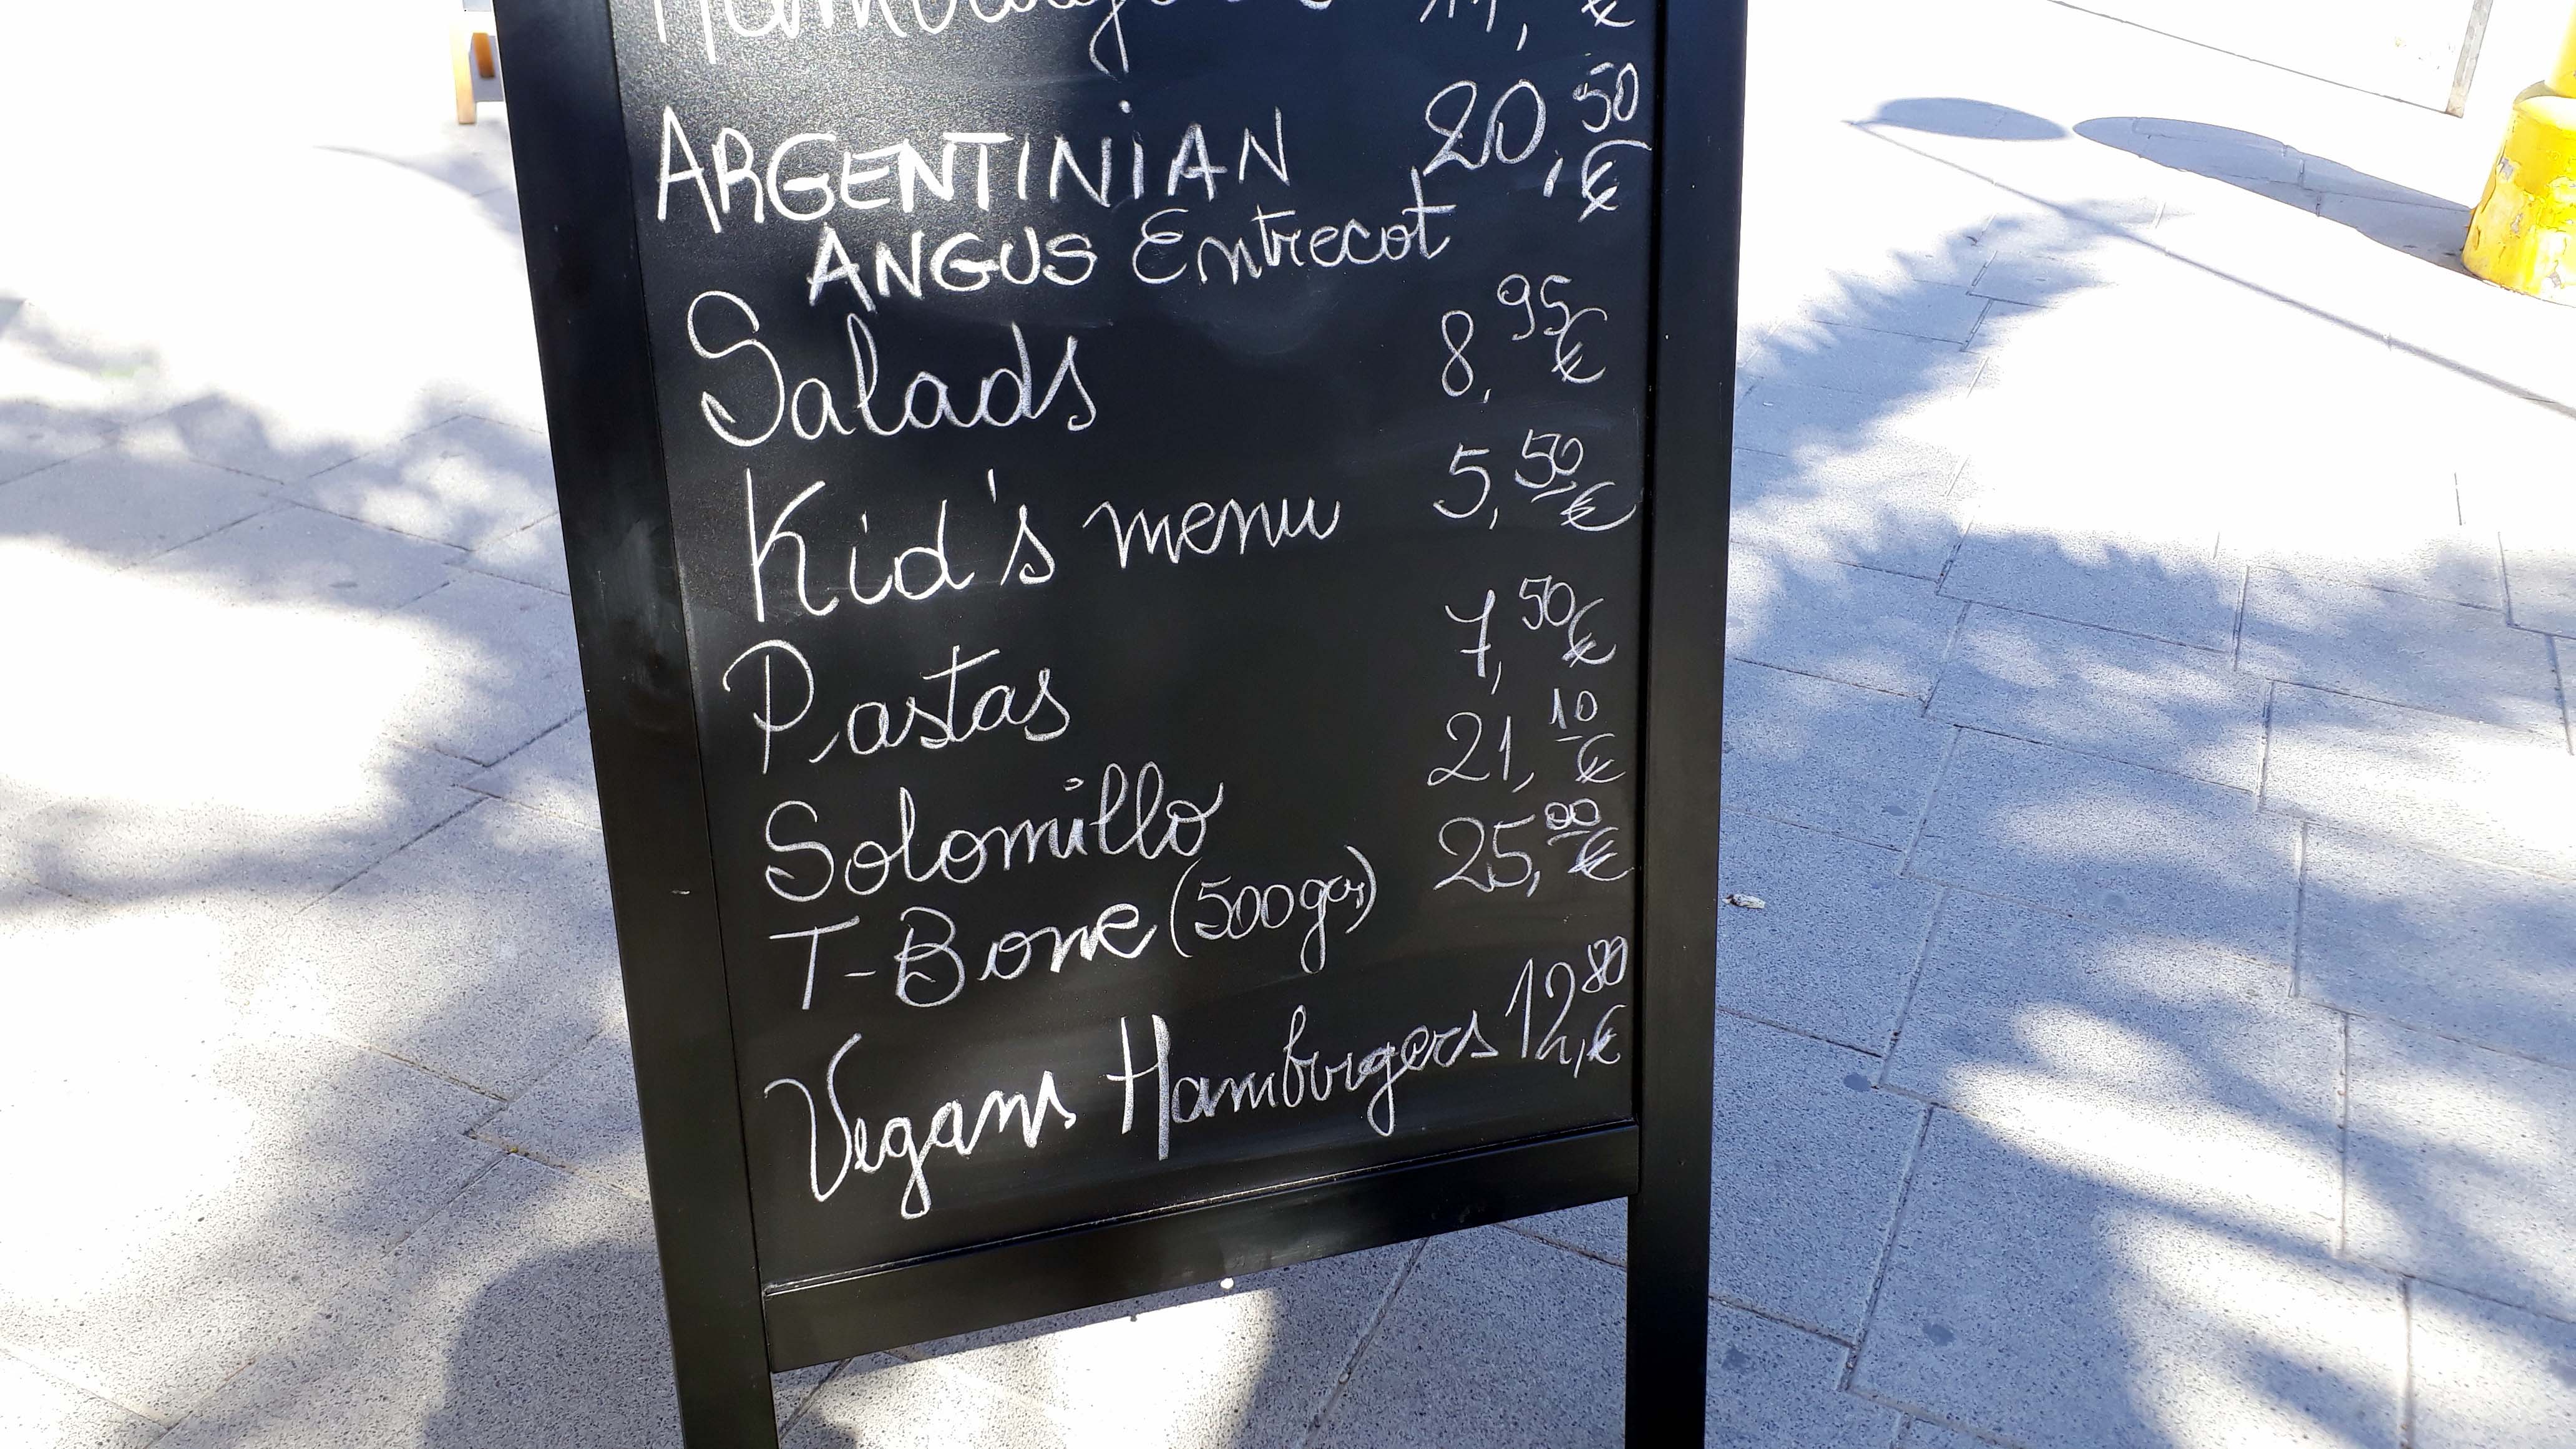 ARGENTINIAN 20,50 €
ANGUS Entrecot
Salads 8,95 €
Kid's menu 5,50 €
Pastas 7,50 €
Solomillo 21,10 €
T-Bone (500gr) 25,00 €
Vegans Hamburgers 12,80 €